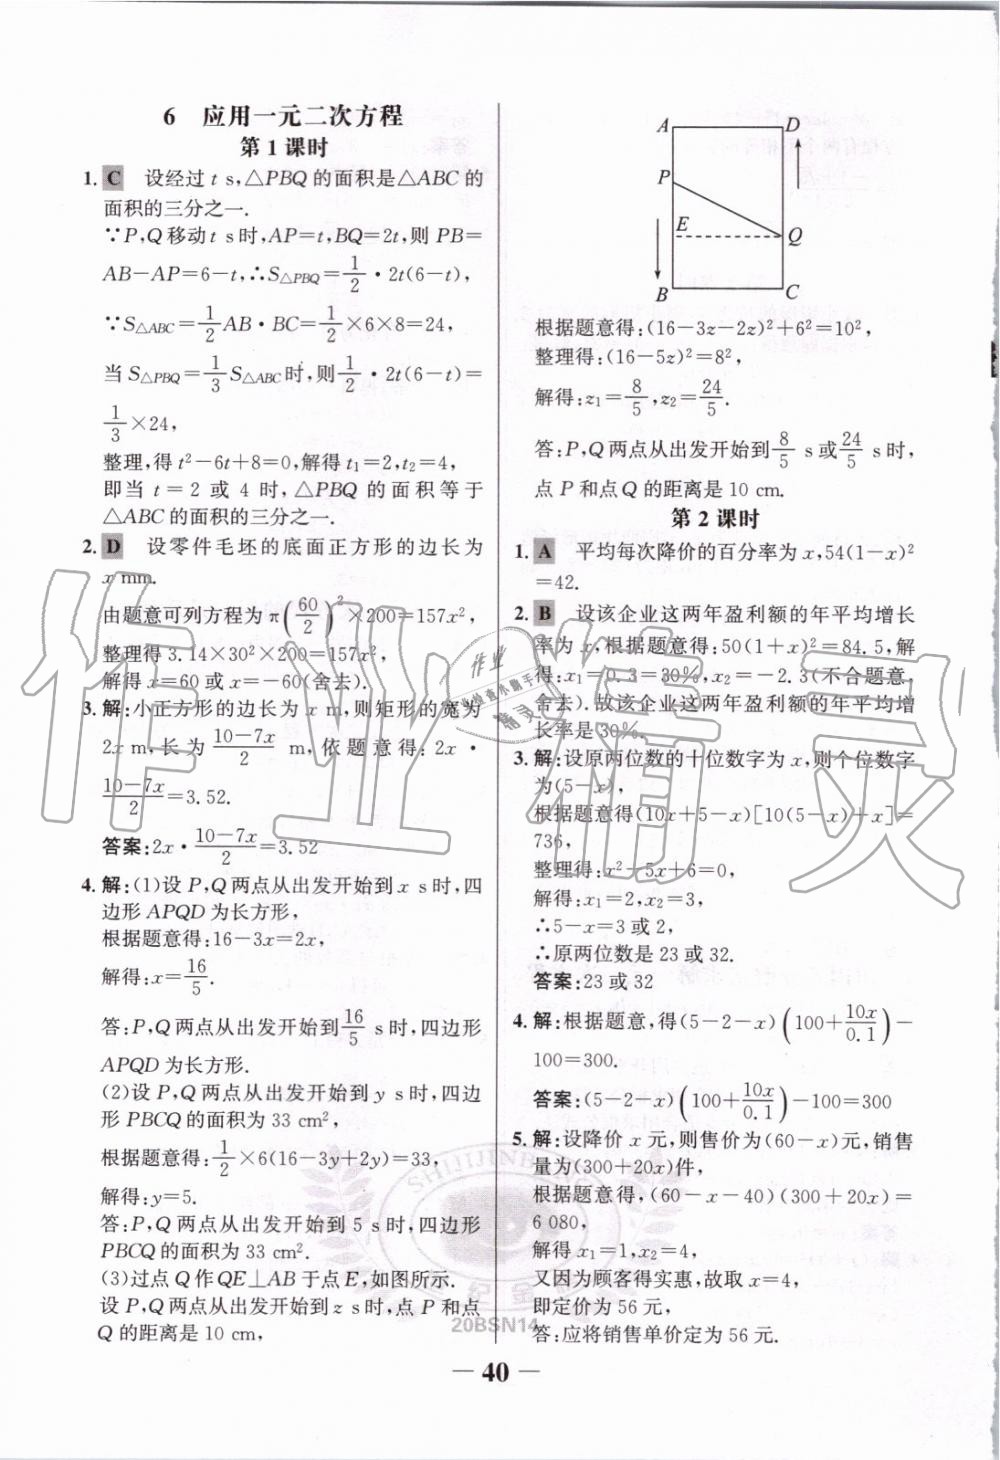 6　应用一元二次方程
第1课时
1. C　设经过 t s,△PBQ 的面积是△ABC 的
面积的三分之一.
∵P,Q 移动 t s 时,AP=t,BQ=2t,则 PB=
AB-AP=6-t,∴S△PBQ=1/2·2t(6-t),
∵S△ABC=1/2AB·BC=1/2×6×8=24,
当 S△PBQ=1/3S△ABC时,则1/2·2t(6-t)=
1/3×24,
整理,得 t²-6t+8=0,解得 t₁=2,t₂=4,
即当 t=2 或 4 时,△PBQ 的面积等于
△ABC 的面积的三分之一.
2. D　设零件毛坯的底面正方形的边长为
x mm.
由题意可列方程为π(60/2)²×200=157x²,
整理得 3.14×30²×200=157x²,
解得 x=60 或 x=-60(舍去).
3. 解:小正方形的边长为 x m,则矩形的宽为
2x m,长为 (10-7x)/2 m,依题意得:2x·
(10-7x)/2=3.52.
答案:2x·(10-7x)/2=3.52
4. 解:(1)设 P,Q 两点从出发开始到 x s 时,四
边形 APQD 为长方形,
根据题意得:16-3x=2x,
解得:x=16/5.
答:P,Q 两点从出发开始到16/5 s 时,四边形
APQD 为长方形.
(2)设 P,Q 两点从出发开始到 y s 时,四边
形 PBCQ 的面积为 33 cm²,
根据题意得:1/2×6(16-3y+2y)=33,
解得:y=5.
答:P,Q 两点从出发开始到 5 s 时,四边形
PBCQ 的面积为 33 cm².
(3)过点 Q 作 QE⊥AB 于点 E,如图所示.
设 P,Q 两点从出发开始到 z s 时,点 P 和点
Q 的距离是 10 cm,
A D
P
E
Q
B C
根据题意得:(16-3z-2z)²+6²=10²,
整理得:(16-5z)²=8²,
解得:z₁=8/5,z₂=24/5.
答:P,Q 两点从出发开始到8/5 s 或24/5 s 时,
点 P 和点 Q 的距离是 10 cm.
第2课时
1. A　平均每次降价的百分率为 x,54(1-x)²
=42.
2. B　设该企业这两年盈利额的年平均增长
率为 x,根据题意得:50(1+x)²=84.5,解
得:x₁=0.3=30%,x₂=-2.3(不合题意,
舍去).故该企业这两年盈利额的年平均增
长率是 30%.
3. 解:设原两位数的十位数字为 x,则个位数字
为(5-x),
根据题意得(10x+5-x)[10(5-x)+x]=
736,
整理得:x²-5x+6=0,
解得:x₁=2,x₂=3,
∴5-x=3 或 2,
∴原两位数是 23 或 32.
答案:23 或 32
4. 解:根据题意,得(5-2-x)(100+10x/0.1)-
100=300.
答案:(5-2-x)(100+10x/0.1)-100=300
5. 解:设降价 x 元,则售价为(60-x)元,销售
量为(300+20x)件,
根据题意得,(60-x-40)(300+20x)=
6 080,
解得 x₁=1,x₂=4,
又因为顾客得实惠,故取 x=4,
即定价为 56 元,
答:应将销售单价定为 56 元.
作业精灵
SHIJIJINBANG
20BSN14
— 40 —